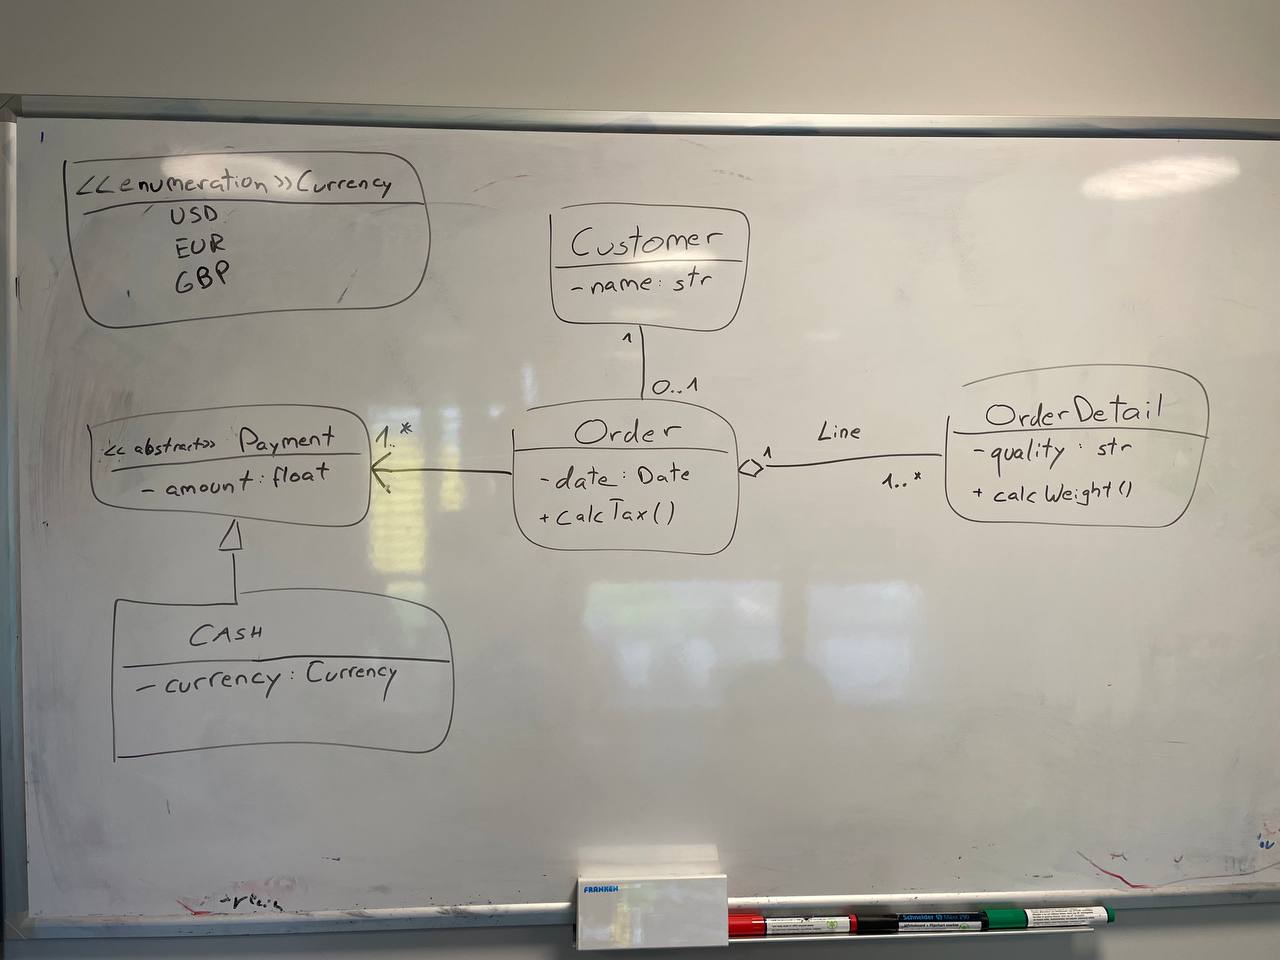 <<enumeration>> Currency
USD
EUR
GBP
Customer
- name: str
1
0..1
<<abstract>> Payment
- amount: float
1..*
Order
- date: Date
+ calcTax()
1
Line
1..*
OrderDetail
- quality: str
+ calcWeight()
CASH
- currency: Currency
FRANKEN
Schneider Maxx 290